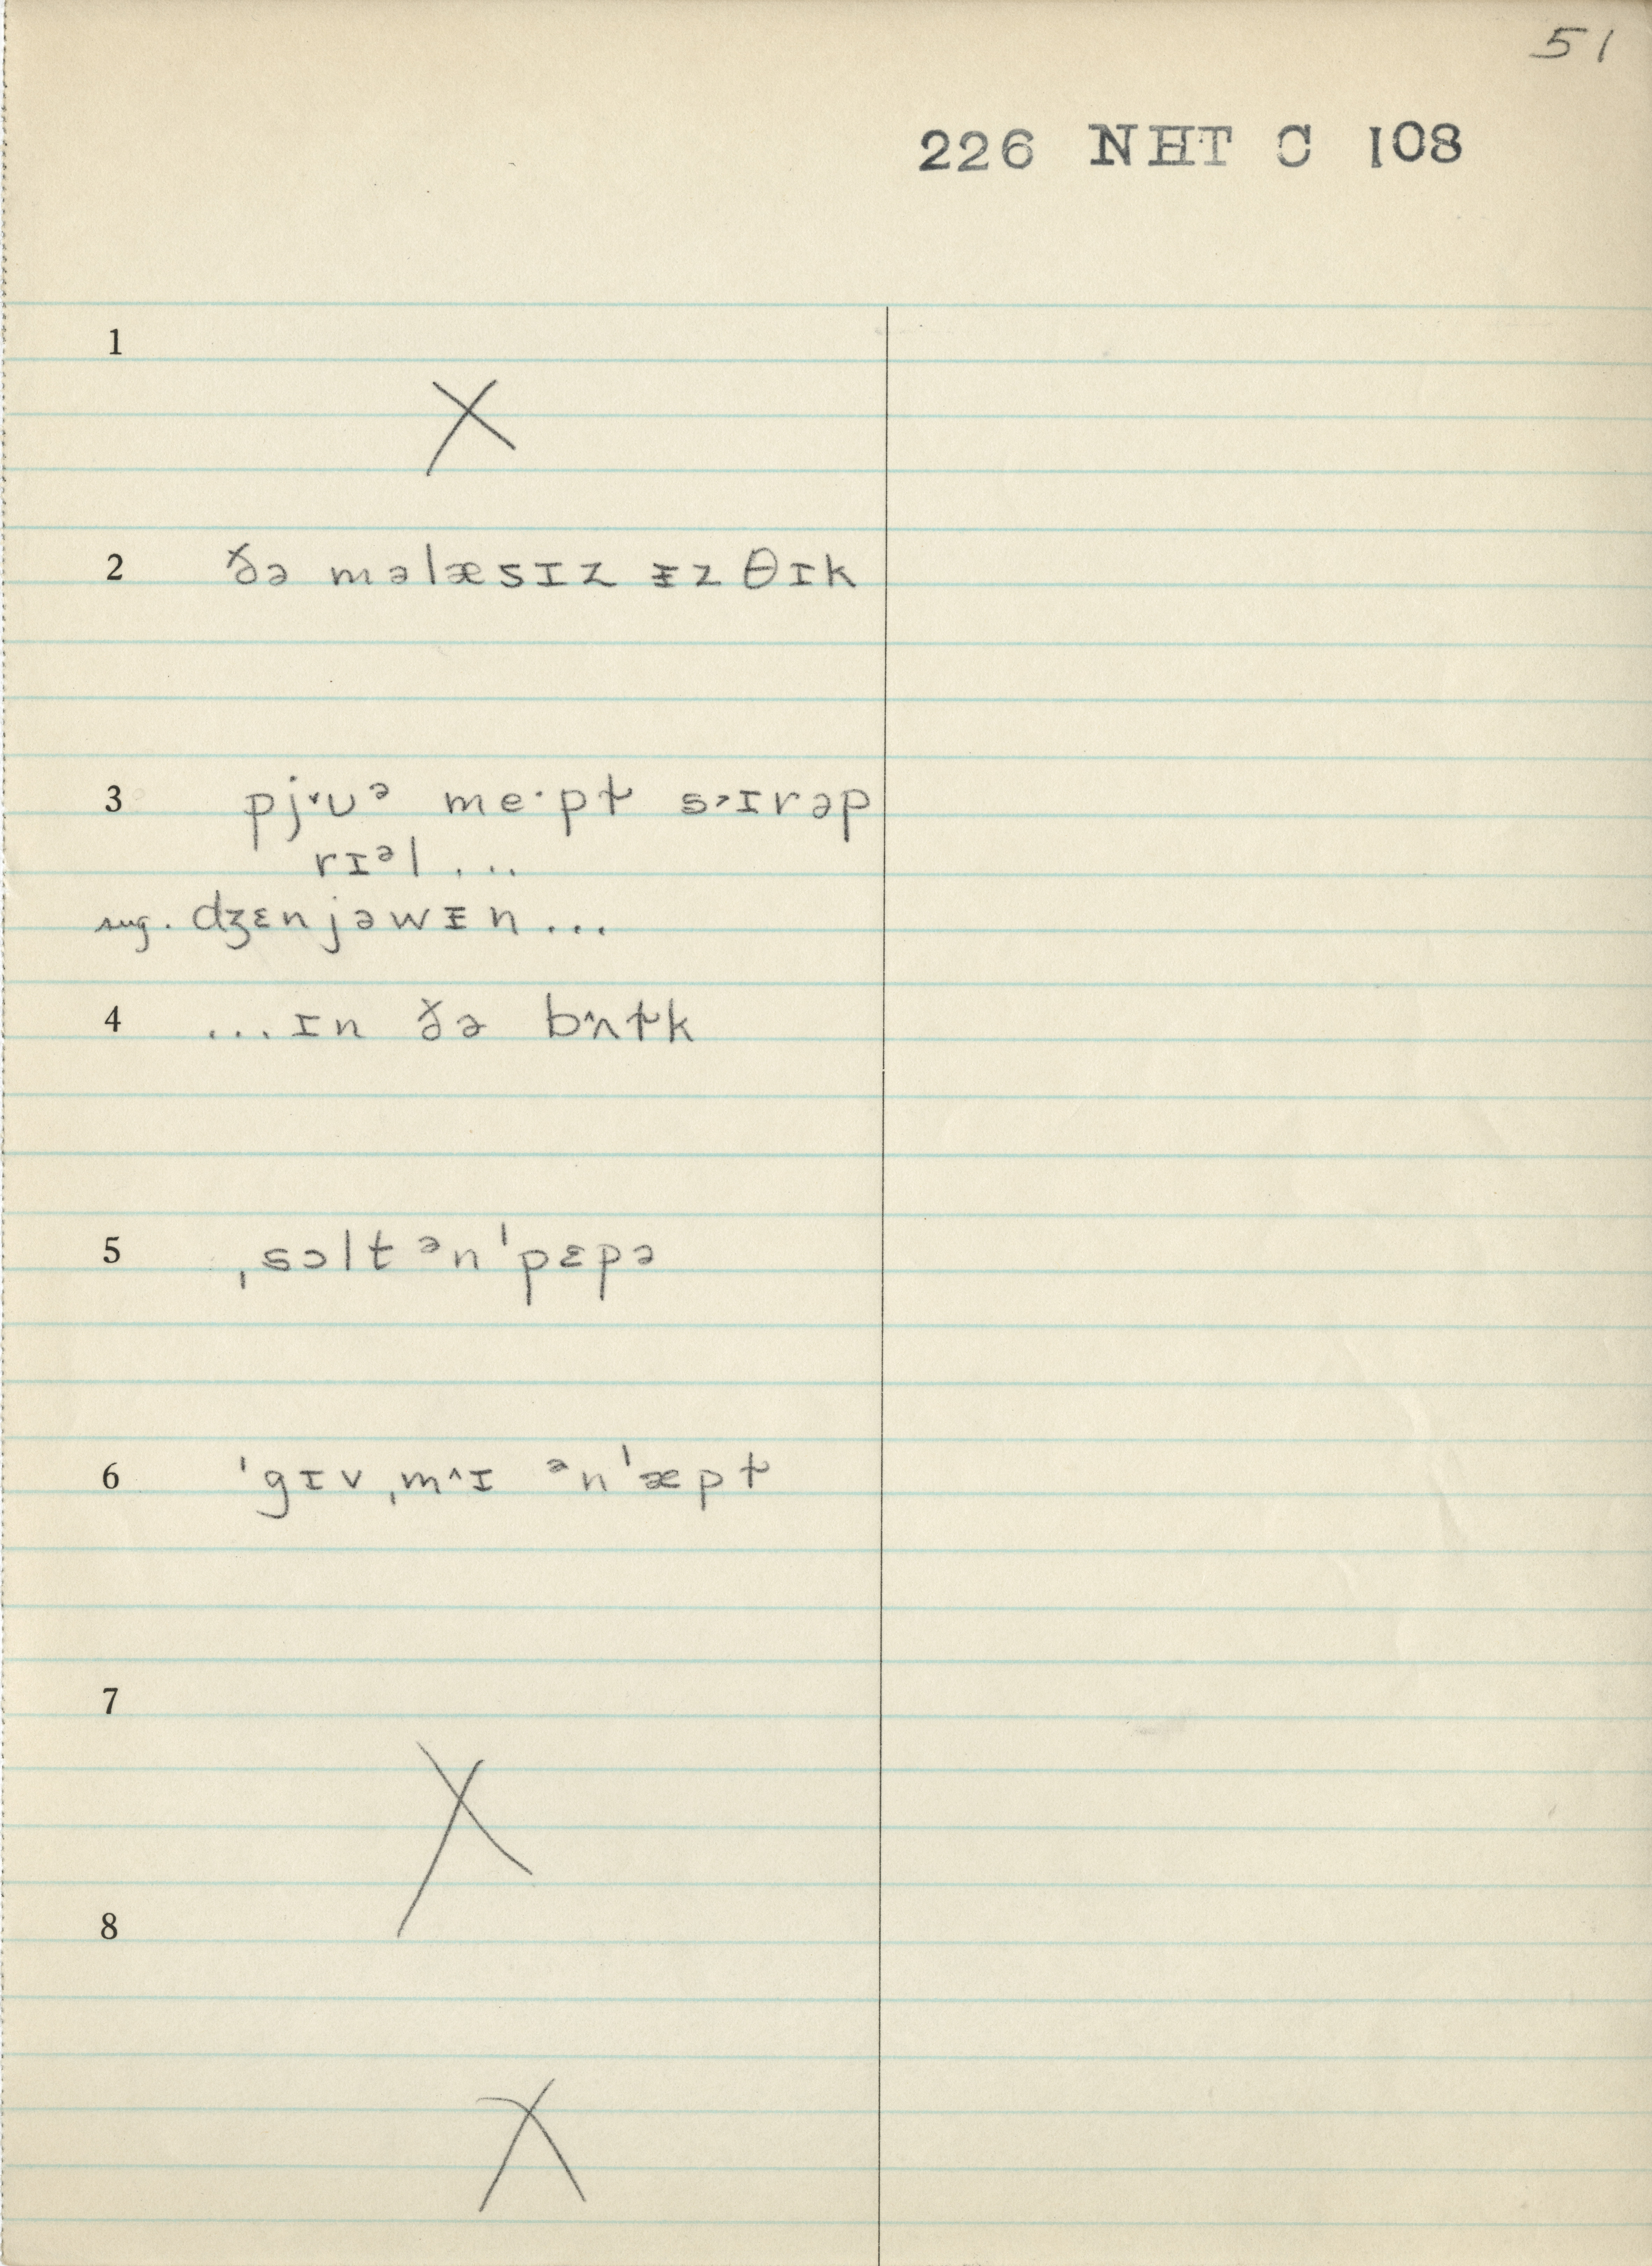 51
226 NHT C 108
1
2 ðə məlæsɪz ᵻz θɪk
3 pj˅ʊᵊ me·pɫ s˒ɪrəp
rɪᵊl ...
sug. dʒɛnjəwᵻn ...
4 ...ɪn ðə b^ʌɫk
5 ˌsɔlt ᵊn ˈpɛpə
6 ˈgɪv ˌm^ɪ ᵊn ˈæpɫ
7
8